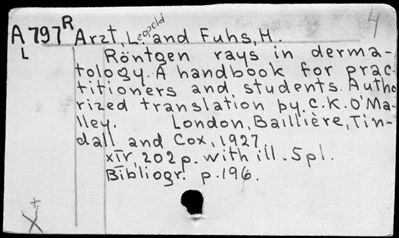 A797R Arzt, Leopold and Fuhs, H.
L
Röntgen rays in derma-
tology. A handbook for prac-
titioners and students. Autho
rized translation by C.K. O'Ma-
lley. London, Baillière, Tin-
dall and Cox, 1927
XIV, 202 p. with ill. 5 pl.
Bibliogr. p. 196.
4